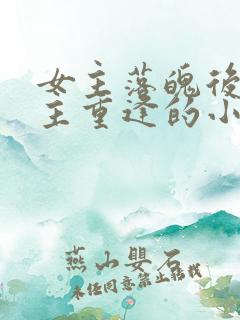 女主落魄后
主重逢的小
燕山婴石
未经同意禁止转载